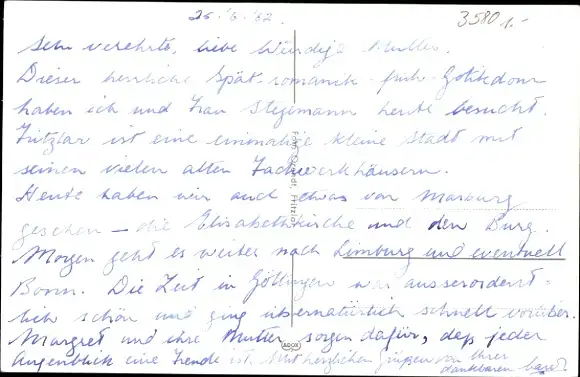 25.'6.'62.
3580 1.-
Sehr verehrte, liebe Würdige Mutter.
Dieser herrliche Spät-romanik-früh-Gotikdom
haben ich und Frau Stegemann heute besucht.
Fritzlar ist eine einmalige kleine Stadt mit
seinen vielen alten Fachwerkhäusern.
Heute haben wir auch etwas von Marburg
gesehen – die Elisabethkirche und den Burg.
Morgen geht es weiter nach Limburg und eventuell
Bonn. Die Zeit in Göttingen war ausserordent-
lich schön und ging übernatürlich schnell vorüber.
Margret und ihre Mutter sorgen dafür, daß jeder
Augenblick eine Freude ist. Mit herzlichen Grüßen von Ihrer
dankbaren
Fritzlar
ADOX